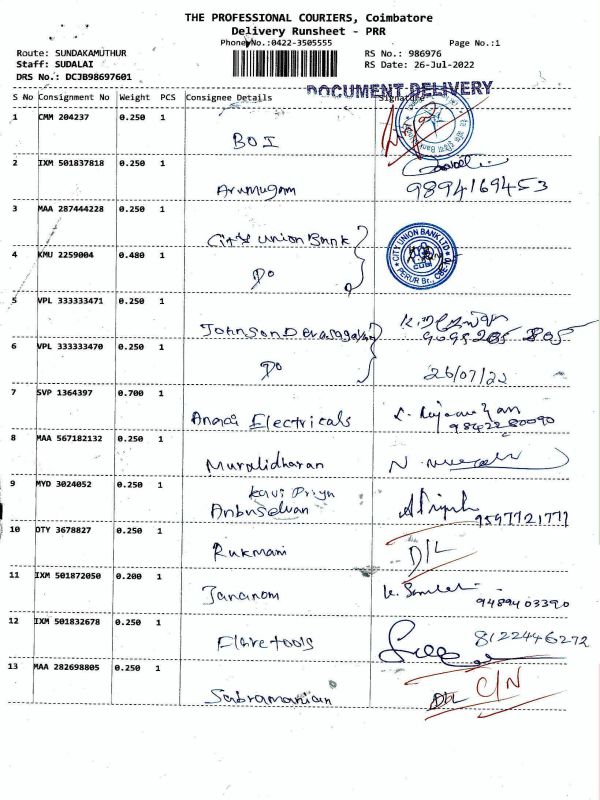 THE PROFESSIONAL COURIERS, Coimbatore
Delivery Runsheet - PRR
Phone No.:0422-3505555 Page No.:1
Route: SUNDAKAMUTHUR RS No.: 986976
Staff: SUDALAI RS Date: 26-Jul-2022
DRS No.: DCJB98697601
DOCUMENT DELIVERY
S No Consignment No Weight PCS Consignee Details Signature
1 CMM 204237 0.250 1 BOI
2 IXM 501837818 0.250 1 Arumugam 9894169453
3 MAA 287444228 0.250 1 City Union Bank
CITY UNION BANK LTD
CUB
4 KMU 2259004 0.480 1 Do
5 VPL 333333471 0.250 1 Johnson Devasagayam
6 VPL 333333470 0.250 1 Do 26/07/22
7 SVP 1364397 0.700 1 Electricals 9842280090
8 MAA 567182132 0.250 1 Muralidharan
9 MYD 3024052 0.250 1 Kavi Priya
Anbuselvan 9597721777
10 DTY 3678827 0.250 1 Rukmani D/L
11 IXM 501872050 0.200 1 Jananom 9489403390
12 IXM 501832678 0.250 1 Flaretools 8122446272
13 MAA 282698805 0.250 1 Sabramanian D/L C/N